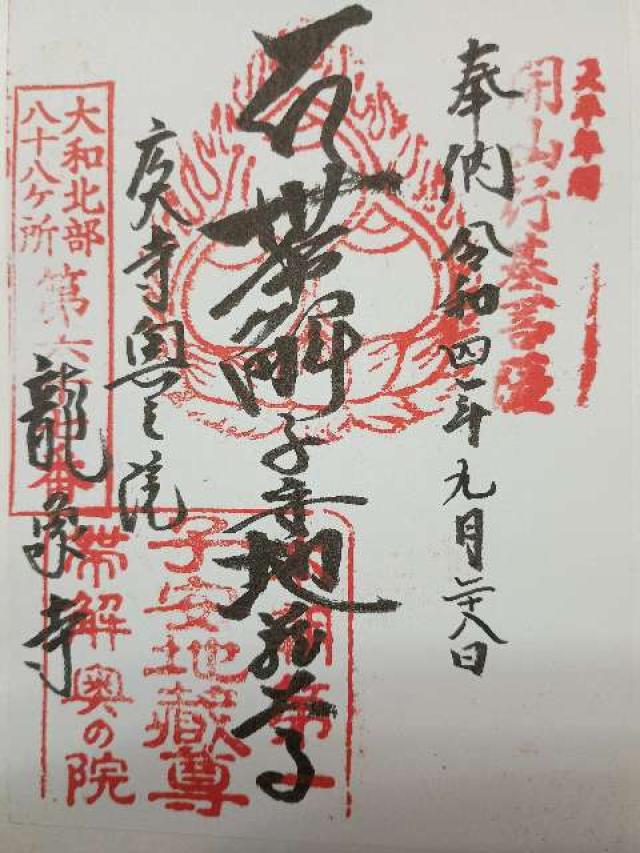 天平年間
開山行基菩薩
奉納 令和四年九月二十八日
帯解子安地蔵尊
奥之院
龍象寺
大和北部
八十八ヶ所 第六十番
本朝第一
子安地蔵尊
帯解奥の院